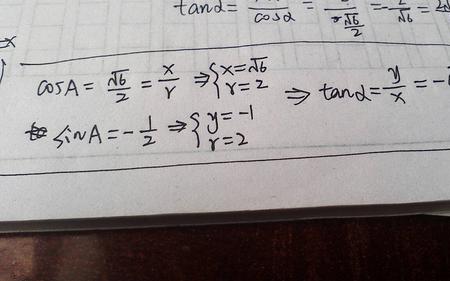 tanα = ─── = ─── = - ─── =
cosα √6/2 √6
cosA = √6/2 = x/r ⇒ { x=√6 r=2
⇒ tanα = y/x = -
sinA = - 1/2 ⇒ { y=-1 r=2